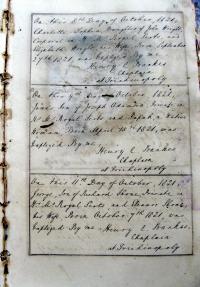 On this 8th Day of October, 1821,
Charlotte Sophia Daughter of John Wright
Corporal in H. M. Royal Scots and
Elizabeth Wright his Wife Born September
27th 1821, was Baptized By me
Henry C. Bankes
Chaplain
at Trichinopoly
On this 9th Day October 1821,
Jane Son of Joseph Private in
H. M. Royal Scots and a Native
Woman Born April 15th 1821, was
Baptized By me
Henry C. Bankes
Chaplain
at Trichinopoly
On this 11th Day of October, 1821,
George, Son of Richard Private in
H. M. Royal Scots and Eleanor
his Wife Born October 7th 1821, was
Baptized By me Henry C. Bankes
Chaplain
at Trichinopoly